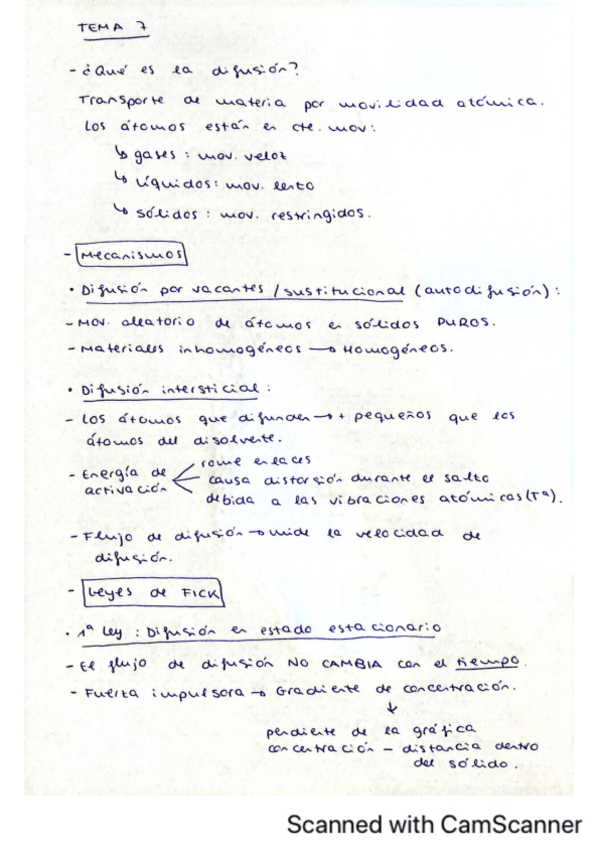 TEMA 7
- ¿Qué es la difusión?
Transporte de materia por movilidad atómica.
Los átomos están en cte. mov:
↳ gases: mov. veloz
↳ líquidos: mov. lento
↳ sólidos: mov. restringidos.
- Mecanismos
• Difusión por vacantes / sustitucional (autodifusión):
- Mov. aleatorio de átomos en sólidos PUROS.
- Materiales inhomogéneos → Homogéneos.
• Difusión intersticial:
- Los átomos que difunden → + pequeños que los
átomos del disolvente.
- Energía de activación
rome enlaces
causa distorsión durante el salto
debida a las vibraciones atómicas (Tª).
- Flujo de difusión → mide la velocidad de
difusión.
- Leyes de FICK
• 1ª Ley: Difusión en estado estacionario
- El flujo de difusión NO CAMBIA con el tiempo.
- Fuerza impulsora → Gradiente de concentración.
↓
pendiente de la gráfica
concentración - distancia dentro
del sólido.
Scanned with CamScanner